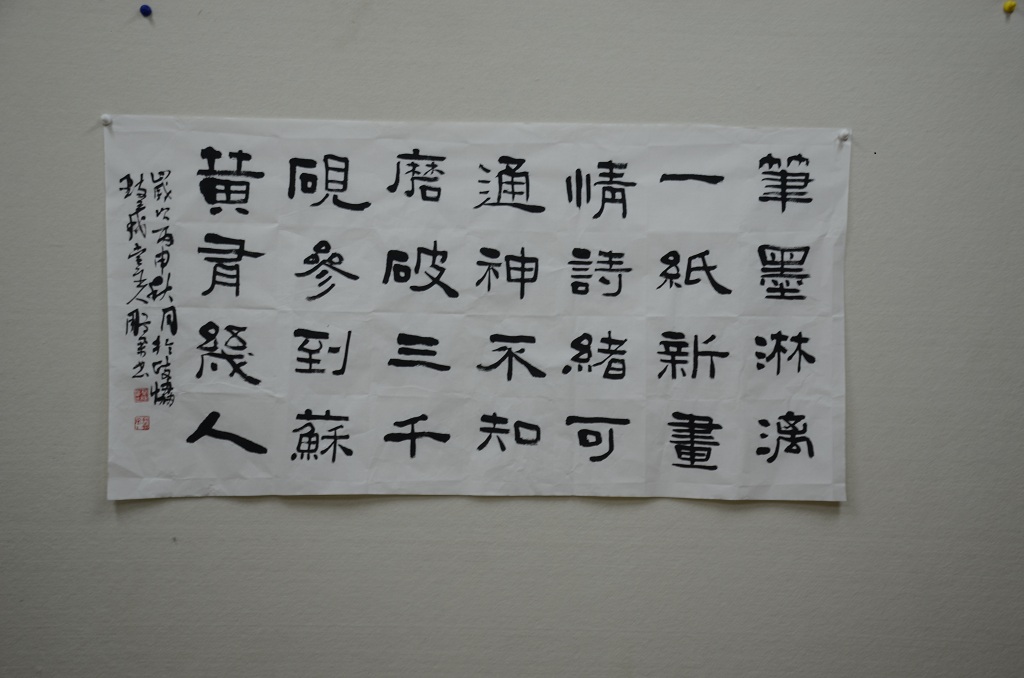 筆墨淋漓
一紙新畫
情詩緒可
通神不知
磨破三千
硯參到蘇
黃有幾人
歲次丙申秋月於